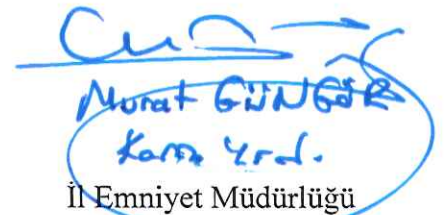 Murat GÜNGÖR
Yrd.
İl Emniyet Müdürlüğü